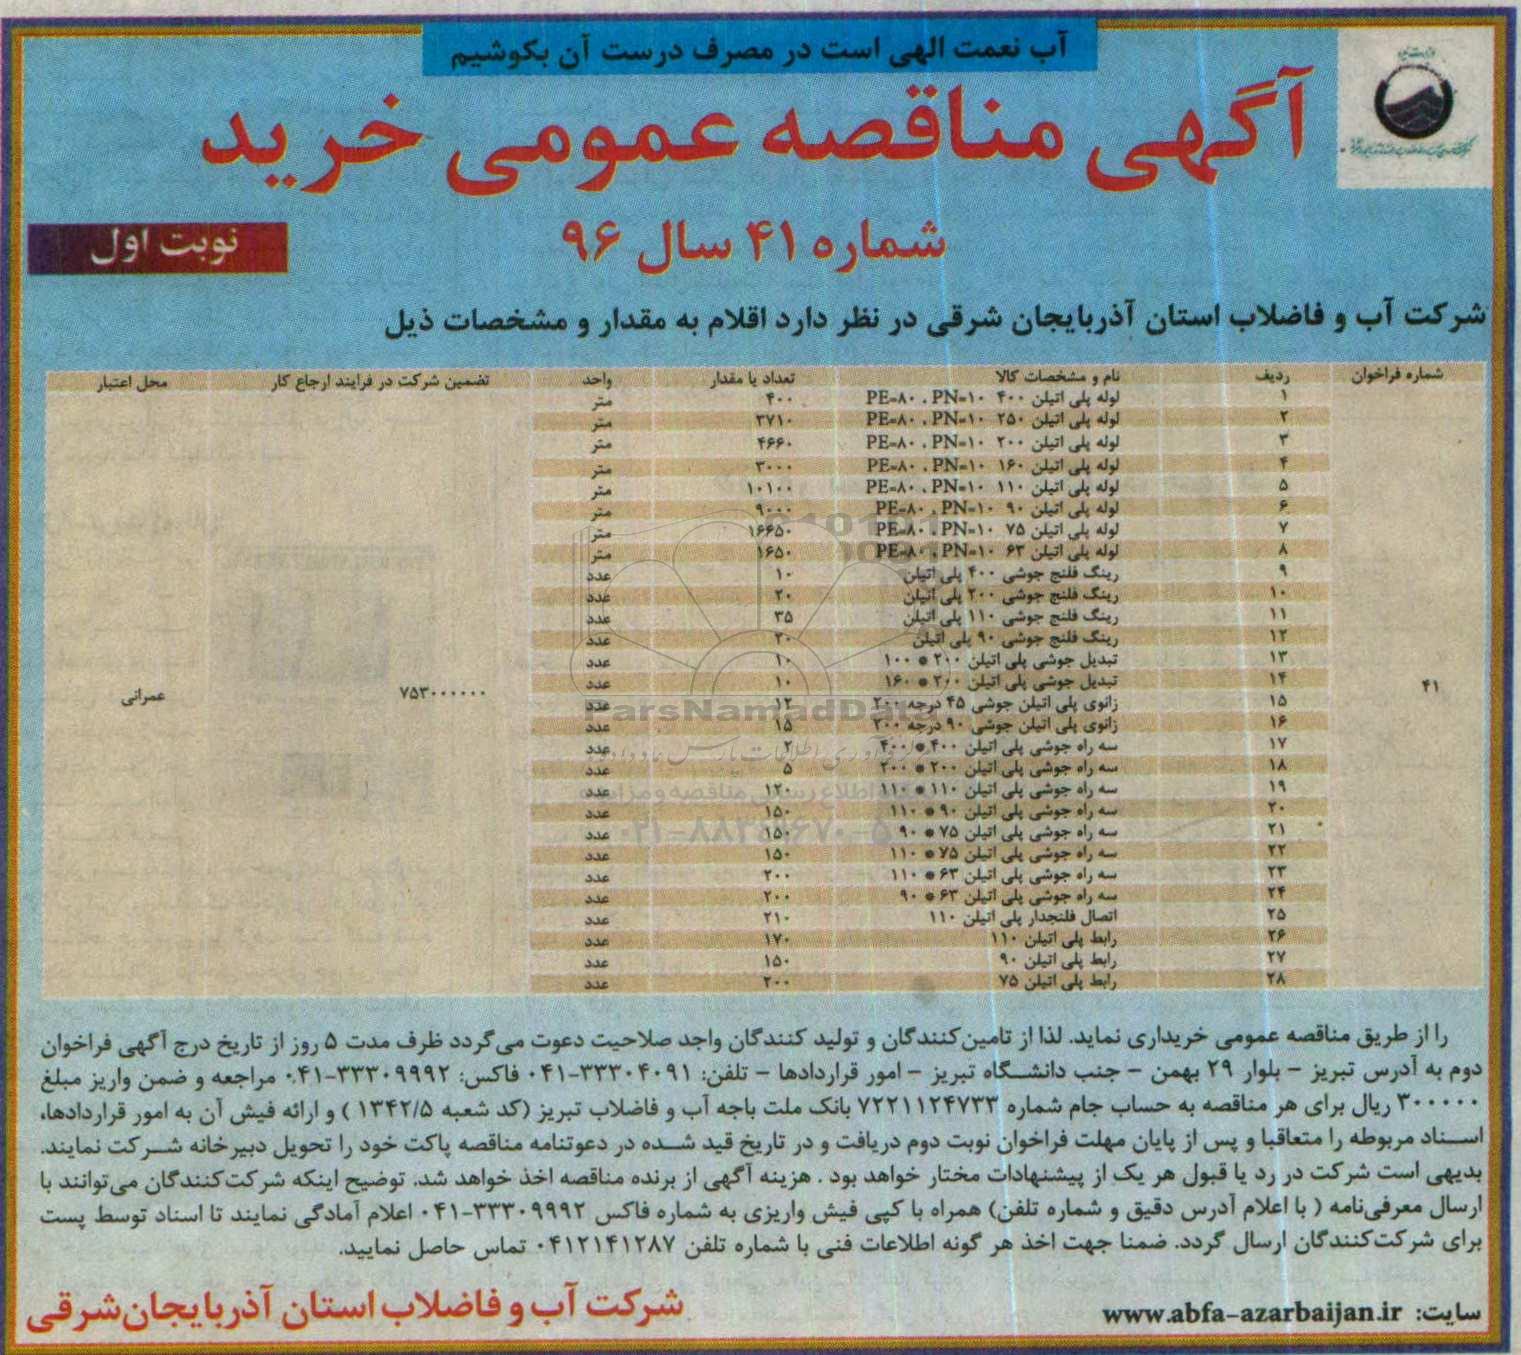 آب نعمت الهی است در مصرف درست آن بکوشیم
آگهی مناقصه عمومی خرید
شماره ۴۱ سال ۹۶
نوبت اول
شرکت آب و فاضلاب استان آذربایجان شرقی در نظر دارد اقلام به مقدار و مشخصات ذیل
شماره فراخوان ردیف نام و مشخصات کالا تعداد یا مقدار واحد تضمین شرکت در فرایند ارجاع کار محل اعتبار
۱ لوله پلی اتیلن ۴۰۰ PE=۸۰ ، PN=۱۰ ۴۰۰ متر
۲ لوله پلی اتیلن ۲۵۰ PE=۸۰ ، PN=۱۰ ۳۷۱۰ متر
۳ لوله پلی اتیلن ۲۰۰ PE=۸۰ ، PN=۱۰ ۴۶۶۰ متر
۴ لوله پلی اتیلن ۱۶۰ PE=۸۰ ، PN=۱۰ ۳۰۰۰ متر
۵ لوله پلی اتیلن ۱۱۰ PE=۸۰ ، PN=۱۰ ۱۰۱۰۰ متر
۶ لوله پلی اتیلن ۹۰ PE=۸۰ ، PN=۱۰ ۹۰۰۰ متر
۷ لوله پلی اتیلن ۷۵ PE=۸۰ ، PN=۱۰ ۱۶۶۵۰ متر
۸ لوله پلی اتیلن ۶۳ PE=۸۰ ، PN=۱۰ ۱۶۵۰ متر
۹ رینگ فلنج جوشی ۴۰۰ پلی اتیلن ۱۰ عدد
۱۰ رینگ فلنج جوشی ۲۰۰ پلی اتیلن ۲۰ عدد
۱۱ رینگ فلنج جوشی ۱۱۰ پلی اتیلن ۳۵ عدد
۱۲ رینگ فلنج جوشی ۹۰ پلی اتیلن ۲۰ عدد
۱۳ تبدیل جوشی پلی اتیلن ۲۰۰ * ۱۰۰ ۱۰ عدد
۱۴ تبدیل جوشی پلی اتیلن ۲۰۰ * ۱۶۰ ۱۰ عدد
۴۱ ۷۵۳۰۰۰۰۰۰ عمرانی
۱۵ زانوی پلی اتیلن جوشی ۴۵ درجه ۲۰۰ ۱۲ عدد
۱۶ زانوی پلی اتیلن جوشی ۹۰ درجه ۲۰۰ ۱۵ عدد
۱۷ سه راه جوشی پلی اتیلن ۴۰۰ * ۴۰۰ ۲ عدد
۱۸ سه راه جوشی پلی اتیلن ۲۰۰ * ۲۰۰ ۵ عدد
۱۹ سه راه جوشی پلی اتیلن ۱۱۰ * ۱۱۰ ۱۲۰ عدد
۲۰ سه راه جوشی پلی اتیلن ۹۰ * ۱۱۰ ۱۵۰ عدد
۲۱ سه راه جوشی پلی اتیلن ۷۵ * ۹۰ ۱۵۰ عدد
۲۲ سه راه جوشی پلی اتیلن ۷۵ * ۱۱۰ ۱۵۰ عدد
۲۳ سه راه جوشی پلی اتیلن ۶۳ * ۱۱۰ ۲۰۰ عدد
۲۴ سه راه جوشی پلی اتیلن ۶۳ * ۹۰ ۲۰۰ عدد
۲۵ اتصال فلنجدار پلی اتیلن ۱۱۰ ۲۱۰ عدد
۲۶ رابط پلی اتیلن ۱۱۰ ۱۷۰ عدد
۲۷ رابط پلی اتیلن ۹۰ ۱۵۰ عدد
۲۸ رابط پلی اتیلن ۷۵ ۲۰۰ عدد
ParsNamadData
را از طریق مناقصه عمومی خریداری نماید. لذا از تامین‌کنندگان و تولید کنندگان واجد صلاحیت دعوت می‌گردد ظرف مدت ۵ روز از تاریخ درج آگهی فراخوان
دوم به آدرس تبریز – بلوار ۲۹ بهمن – جنب دانشگاه تبریز – امور قراردادها – تلفن: ۳۳۳۰۴۰۹۱-۰۴۱ فاکس: ۳۳۳۰۹۹۹۲-۰۴۱ مراجعه و ضمن واریز مبلغ
۳۰۰۰۰۰ ریال برای هر مناقصه به حساب جام شماره ۷۲۲۱۱۲۴۷۳۳ بانک ملت باجه آب و فاضلاب تبریز (کد شعبه ۱۳۴۲/۵ ) و ارائه فیش آن به امور قراردادها،
اسناد مربوطه را متعاقبا و پس از پایان مهلت فراخوان نوبت دوم دریافت و در تاریخ قید شده در دعوتنامه مناقصه پاکت خود را تحویل دبیرخانه شرکت نمایند.
بدیهی است شرکت در رد یا قبول هر یک از پیشنهادات مختار خواهد بود . هزینه آگهی از برنده مناقصه اخذ خواهد شد. توضیح اینکه شرکت‌کنندگان می‌توانند با
ارسال معرفی‌نامه ( با اعلام آدرس دقیق و شماره تلفن) همراه با کپی فیش واریزی به شماره فاکس ۳۳۳۰۹۹۹۲-۰۴۱ اعلام آمادگی نمایند تا اسناد توسط پست
برای شرکت‌کنندگان ارسال گردد. ضمنا جهت اخذ هر گونه اطلاعات فنی با شماره تلفن ۰۴۱۲۱۴۱۲۸۷ تماس حاصل نمایید.
سایت: www.abfa-azarbaijan.ir
شرکت آب و فاضلاب استان آذربایجان‌شرقی